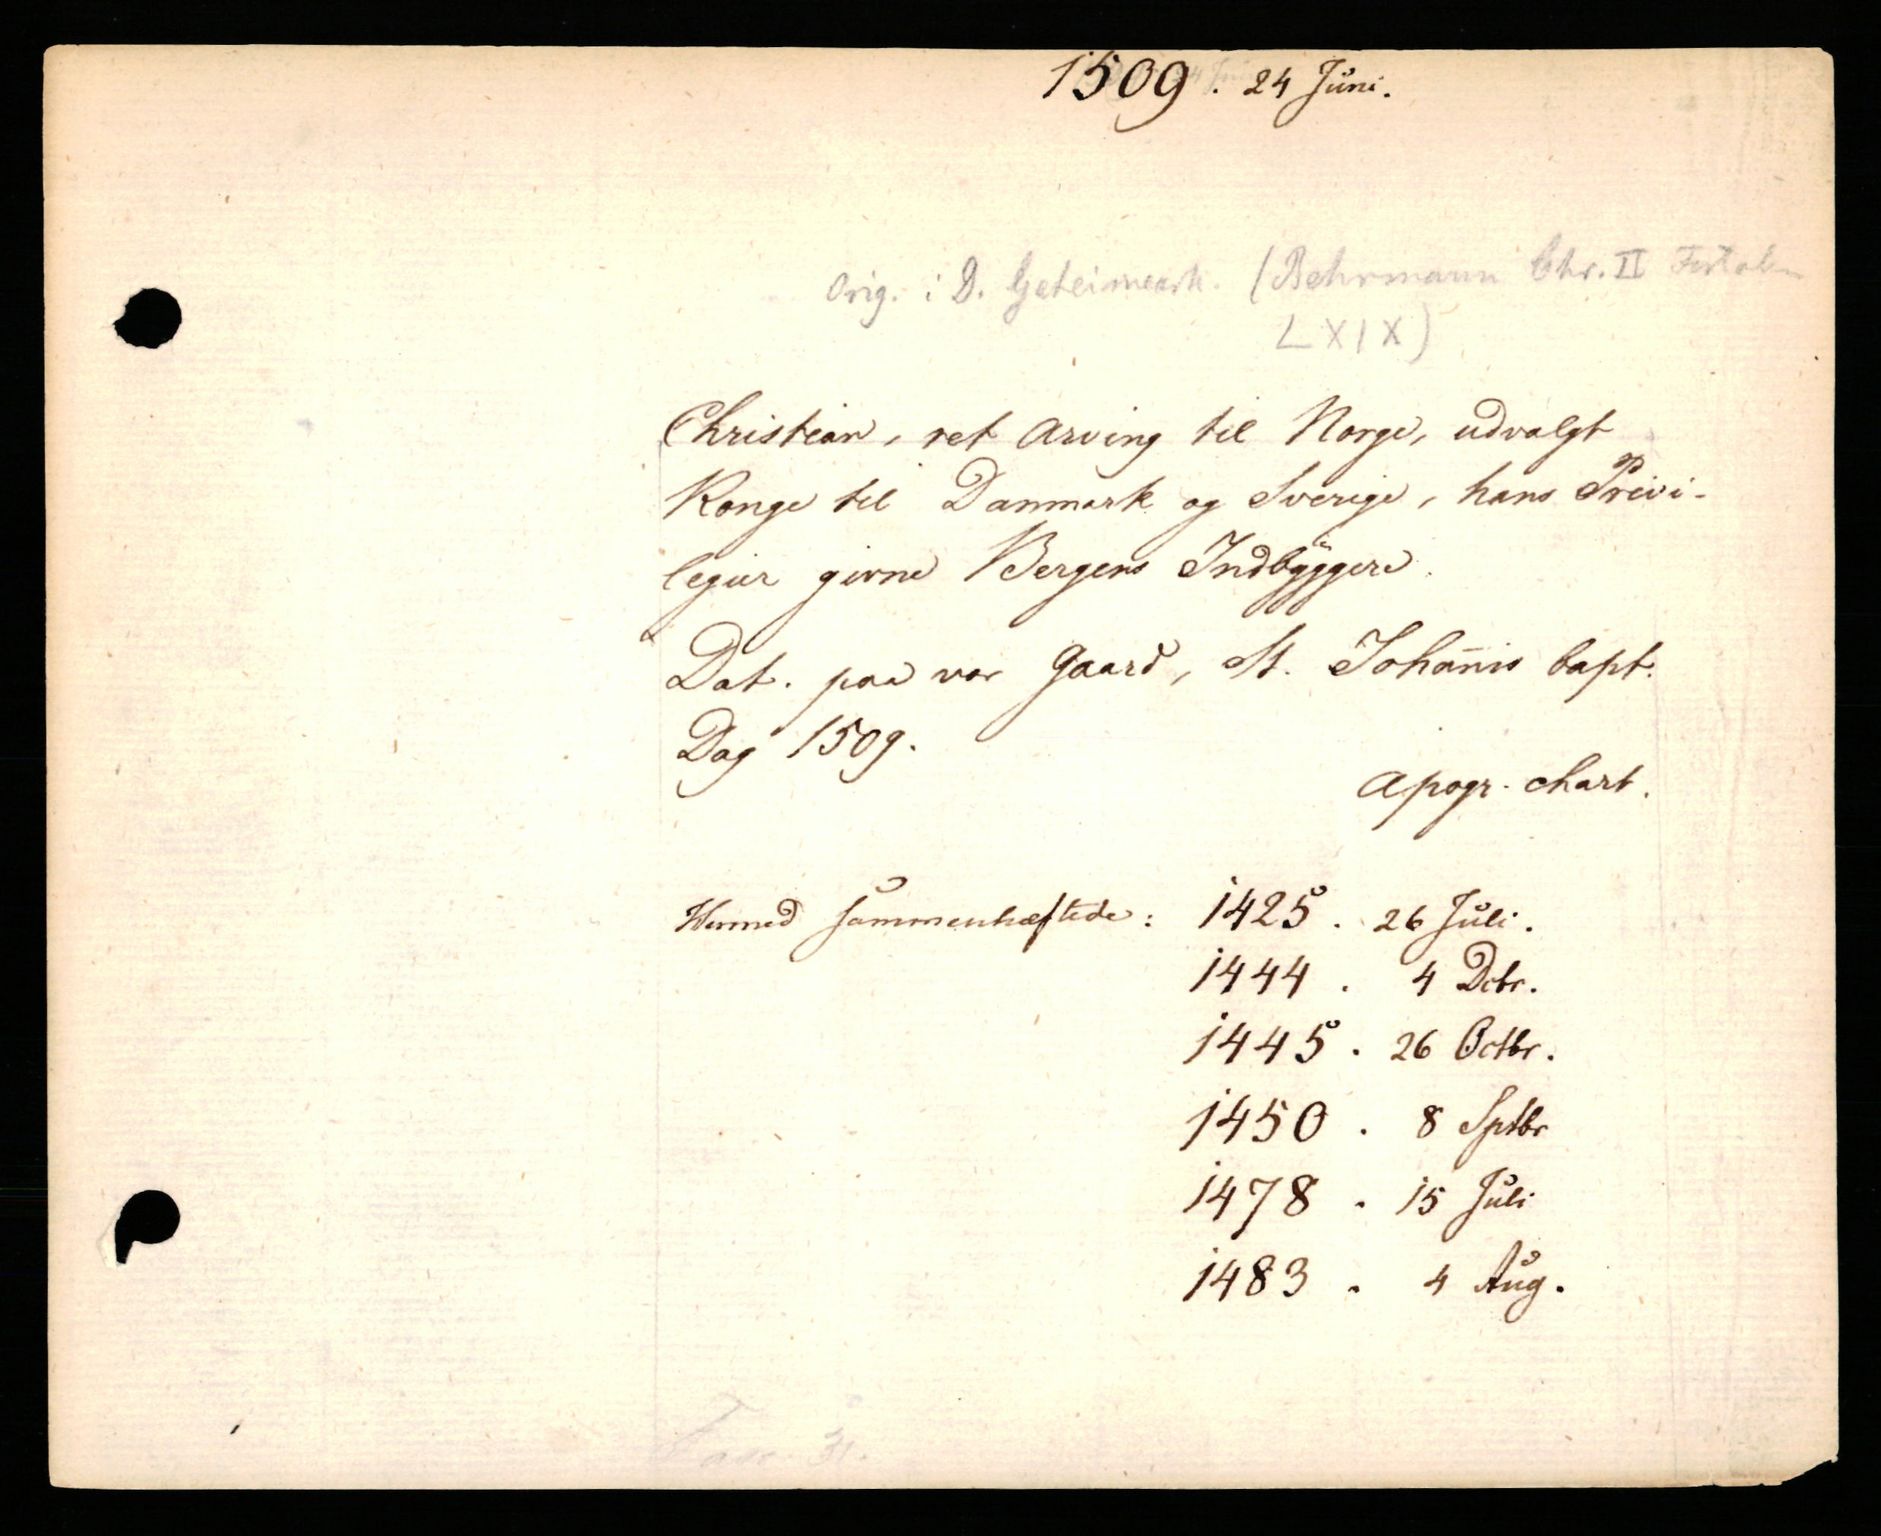 1509. 24 Juni.
Orig. i D. Geheimeark. (Behrmann Chr. II
LXIX)
Christian, ret Arving til Norge, udvalgt
Konge til Danmark og Sverige, hans Privi-
legier givne Bergens Indbÿggere.
Dat. paa vor Gaard, St. Johan̄is bapt.
Dag 1509.
Apogr. chart.
Hermed sammenhæftede: 1425. 26 Juli.
1444. 4 Dcbr.
1445. 26 Octbr.
1450. 8 Sptbr
1478. 15 Juli
1483. 4 Aug.
Fasc. 31.